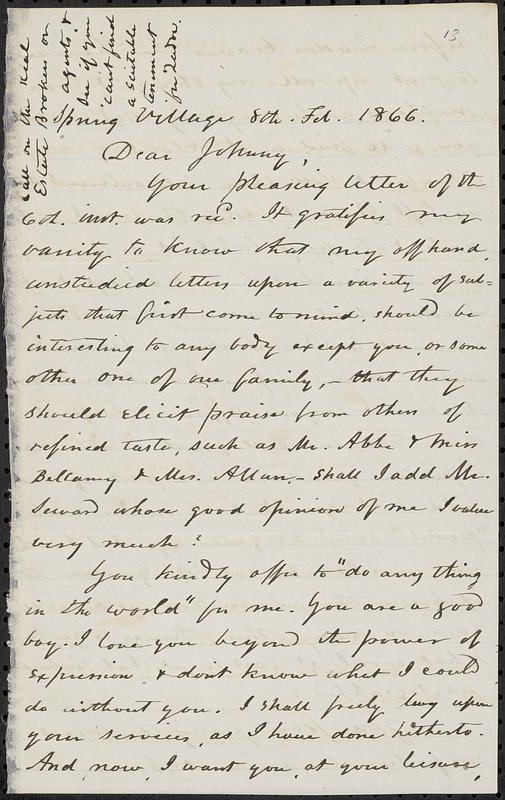 13
Call on the Real
Estate Brokers or
agents, &
see if you
can't find
a suitable
tenement
for Dudu.
Spring Village 8th. Feb. 1866.
Dear Johnny,
Your pleasing letter of the
6th. inst. was recd. It gratifies my
vanity to know that my off hand,
unstudied letters upon a variety of sub=
jects that first come to mind, should be
interesting to any body except you, or some
other one of our family, - that they
should elicit praise from others of
refined taste, such as Mr. Abbe & Miss
Bellamy & Mrs. Allan, - shall I add Mr.
Seward whose good opinion of me I value
very much?
You kindly offer to "do any thing
in the world" for me. You are a good
boy. I love you beyond the power of
expression, & don't know what I could
do without you. I shall freely levy upon
your services, as I have done hitherto.
And, now, I want you, at your leisure,